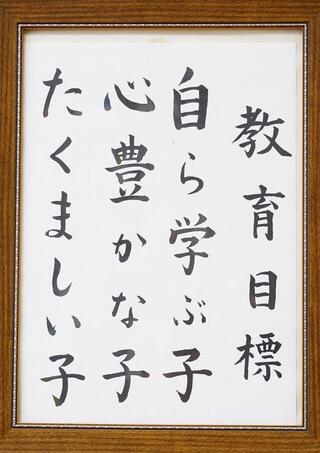 教育目標
自ら学ぶ子
心豊かな子
たくましい子